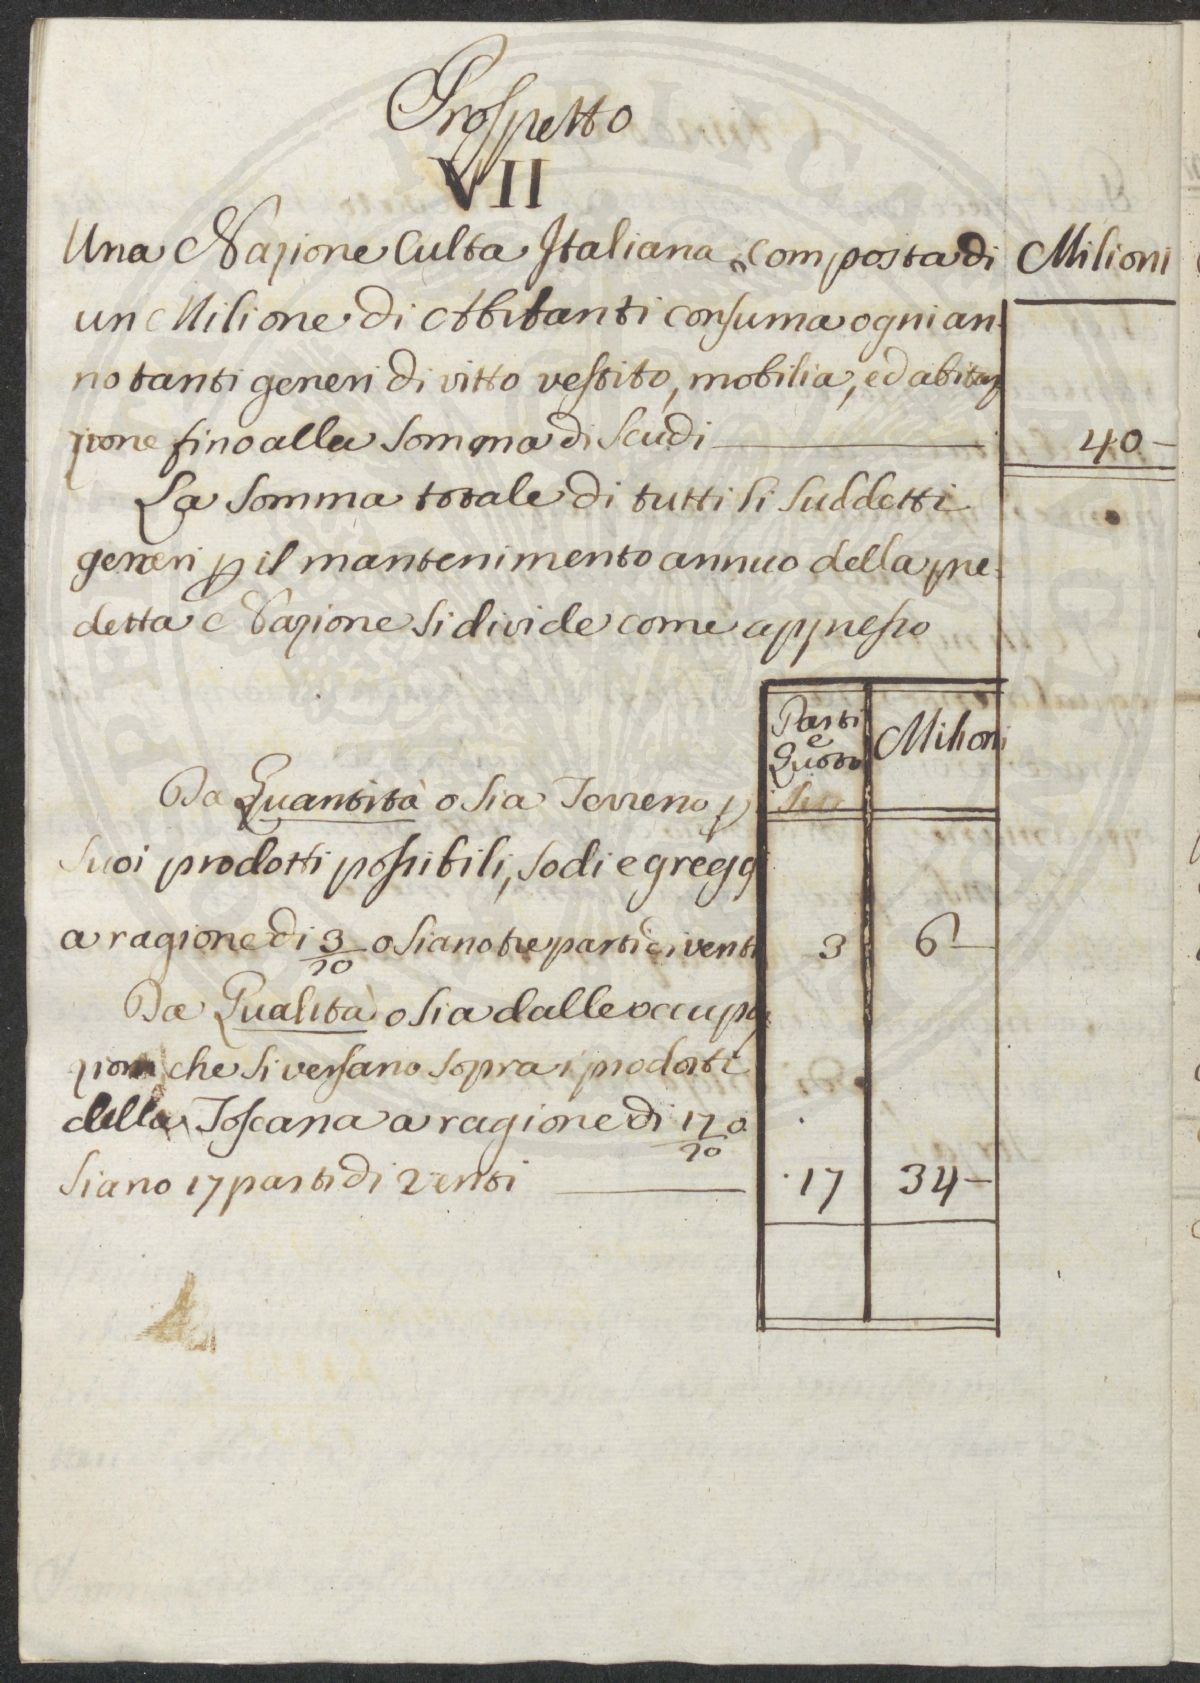 Prospetto
VII
Una Nazione Culta Italiana composta di
Milioni
un Milione di Abitanti consuma ogni an-
no tanti generi di vitto vestito, mobilia, ed abitaz
zione fino alla somma di Scudi
40
La somma totale di tutti li suddetti
generi p il mantenimento annuo della pre-
detta Nazione si divide come appresso
Parti
e
Quote
Milioni
Da Quantità o sia Terreno p
suoi prodotti possibili, sodi e greggi
a ragione di 3/20 o siano tre parti di venti
3
6
Da Qualità o sia dalle occupa
zioni che si versano sopra i prodotti
della Toscana a ragione di 17/20 o
siano 17 parti di Venti
17
34